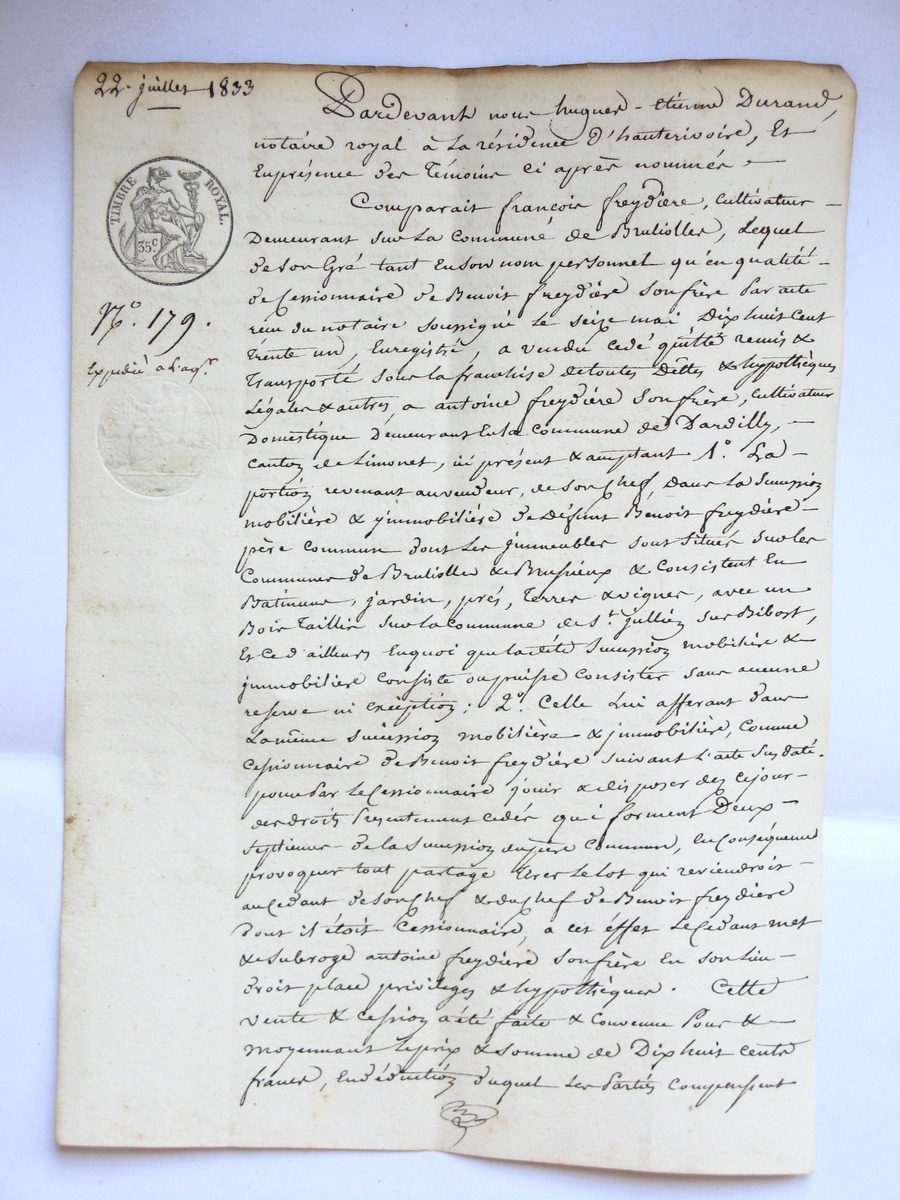 22 juillet 1833
TIMBRE ROYAL.
35c
N.o 179.
Expédié à l'aqr.
Pardevant nous hugues-étienne Durand,
notaire royal à La résidence d'hauterivoire, Et
Enprésence des Témoins ci après nommés
Comparait françois freydière, Cultivateur
Demeurant sur La Commune de Brullioles, Lequel
de son Gré tant En son nom personnel qu'en qualité
de Cessionnaire de Benoit freydière son frère par acte
recu du notaire soussigné Le seize mai Dix huit cent
Trente un, Enregistré, a vendu cedé quitté remis &
Transporté sous La franchise de toutes Dettes & hypothèques
Légales & autres, a antoine freydière son frère, cultivateur
Domestique Demeurant En la commune de Dardilly,
Canton de Limonet, ici présent & acceptant 1.o La
portion revenant au vendeur, de son Chef, dans La succession
mobilière & jmmobilière de Défunt Benoit freydière
père commun dont Les jmmeubles sont situés sur les
Communes de Brulliolles & Brussieux & Consistent En
Batimens, jardin, prés, Terres & vignes, avec un
Bois Taillis sur La commune de St. jullien sur Bibost,
Et Ce d'ailleurs En quoi que La dite succession mobilière &
jmmobilière Consiste ou puisse Consister sans aucune
reserve ni Exception; 2.o Celle Lui afferant dans
La même succession mobilière & jmmobilière, Comme
Cessionnaire de Benoit freydière suivant L'acte susdaté.
pour Par Le Cessionnaire jouir & disposer dez ce jour
des droits Presentement cedés qui forment Deux
septiemes de La succession du père Commun, En Conséquence
provoquer tout partage tirer Le Lot qui reviendroit
au Cedant de son Chef & du Chef de Benoit freydiere
dont il étoit Cessionnaire, a cet éffet Le Cedant met
& subroge antoine freydière son frère En son Lieu
droit place privileges & hypothèques. Cette
vente & Cession a été faite & Convenue Pour &
moyennant Le prix & somme de Dix huit cents
francs, En déduction duquel Les Parties Compensent